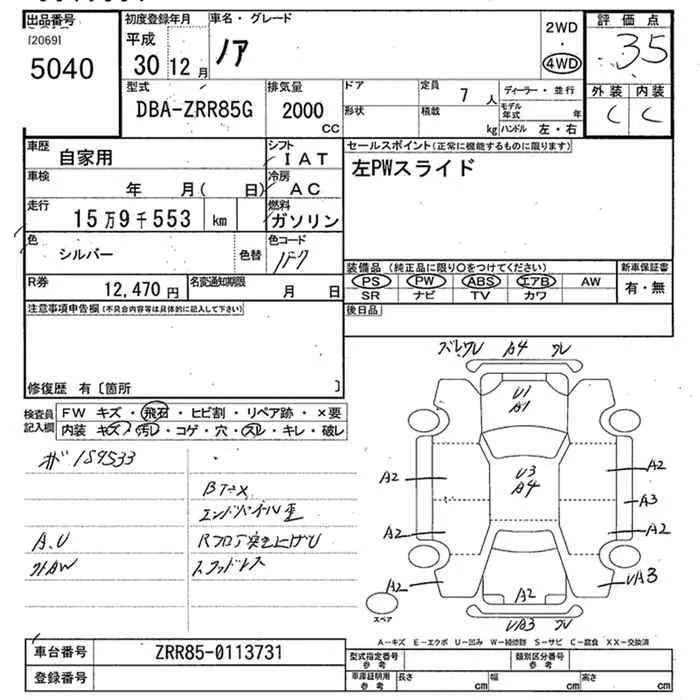 出品番号
[20691
5040
初度登録年月
平成
30 12 月
車名・グレード
ノア
2WD
・
4WD
評価点
3.5
外装 内装
C C
型式
DBA-ZRR85G
排気量
2000
CC
ドア
形状
定員
7 人
積載
kg
ディーラー・並行
モデル年式 年
ハンドル 左・右
車歴
自家用
シフト
IAT
車検
年 月( 日)
冷房
AC
走行
15万9千553 km
燃料
ガソリン
色
シルバー
色替
色コード
1F7
R券
12,470 円
名変通知期限
月 日
セールスポイント(正常に機能するものに限ります)
左PWスライド
装備品(純正品に限り〇をつけてください)
PS PW ABS エアB AW
SR ナビ TV カワ
新車保証書
有・無
後日品
注意事項申告欄(不具合内容等は具体的に記入して下さい)
修復歴 有〔箇所 〕
検査員記入欄
FW キズ・飛石・ヒビ割・リペア跡・×要
内装 キズ・汚レ・コゲ・穴・スレ・キレ・破レ
159533
A、U
BTモX
スタッドレス
A4 ワレ
U1
A1
U3
A4
A2 A2
A3
A2 A2
A2 A2 UA3
UA3 ワレ
スペア
A－キズ E－エクボ U－凹み W－補修跡 S－サビ C－腐食 XX－交換済
車台番号
ZRR85-0113731
登録番号
型式指定番号
参考
類別区分番号
参考
車庫証明用
参考
長さ cm
幅 cm
高さ cm